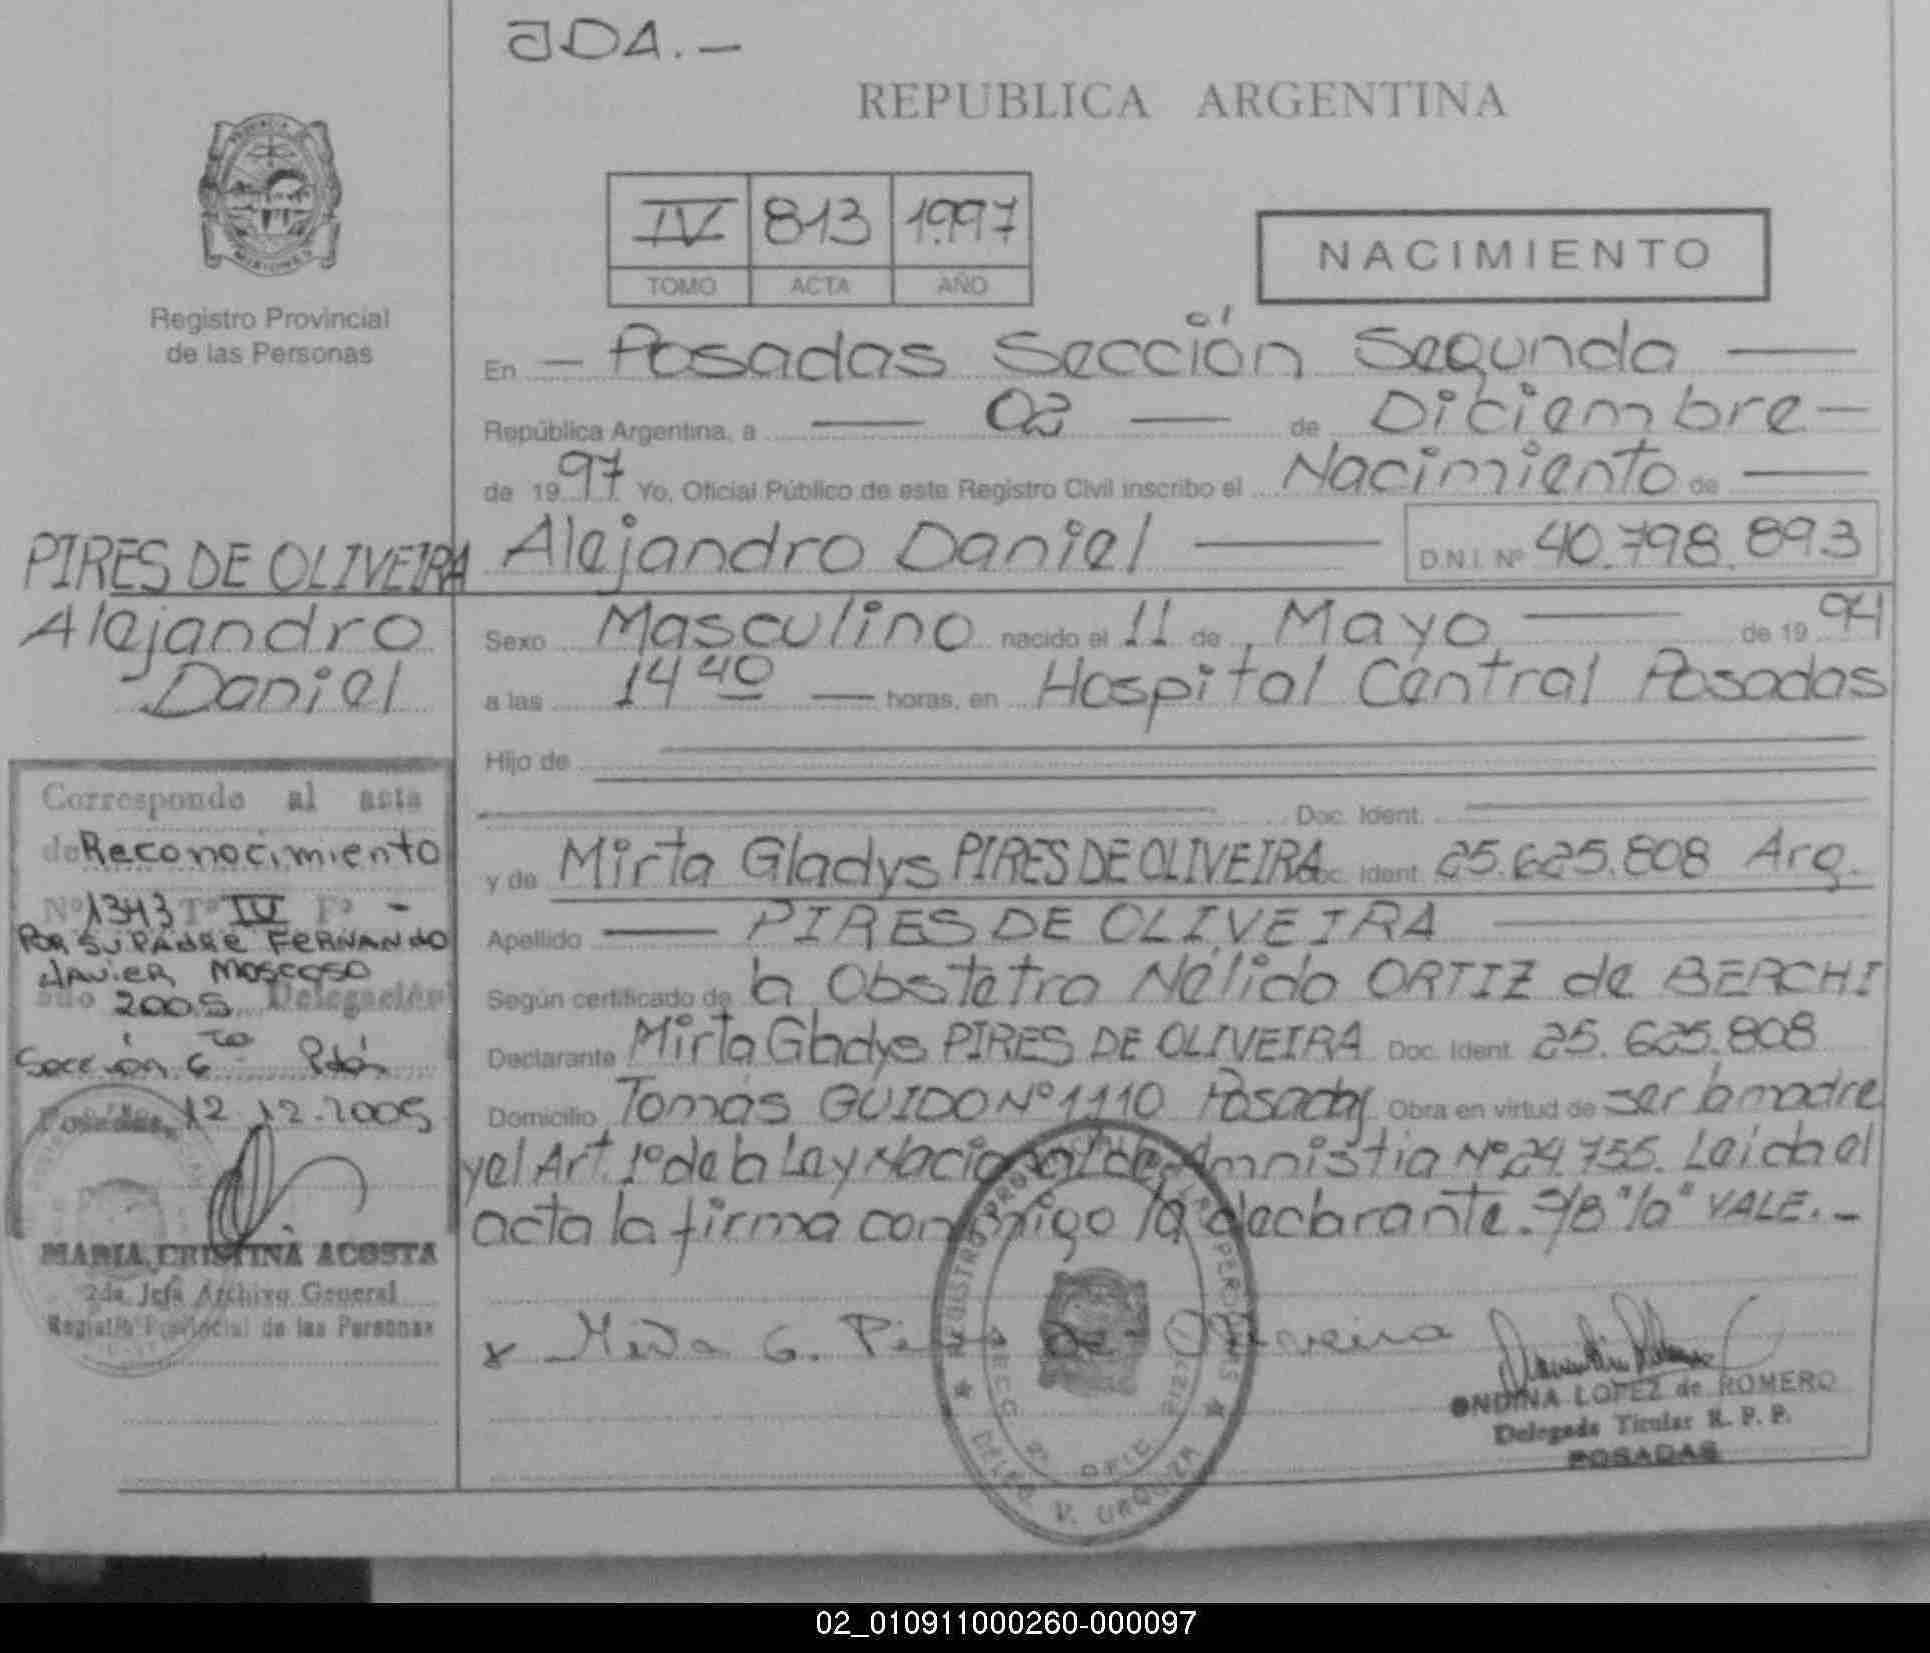 JDA.-
REPUBLICA ARGENTINA
IV 813 1997
TOMO ACTA AÑO
NACIMIENTO
Registro Provincial
de las Personas
En - Posadas Sección Segunda
República Argentina, a 02 de Diciembre -
de 1997 Yo, Oficial Público de este Registro Civil inscribo el Nacimiento de
Alejandro Daniel D.N.I. Nº 40.798.893
PIRES DE OLIVEIRA
Alejandro
Daniel
Sexo Masculino nacido el 11 de Mayo de 1994
a las 14 40 horas, en Hospital Central Posadas
Hijo de
Doc. Ident.
y de Mirta Gladys PIRES DE OLIVEIRA Doc. Ident. 25.625.808 Arg.
Apellido PIRES DE OLIVEIRA
Según certificado de la Obstetra Nélida ORTIZ de BERCHI
Declarante Mirta Gladys PIRES DE OLIVEIRA Doc. Ident. 25.625.808
Domicilio Tomás GUIDO Nº 1110 Posadas Obra en virtud de ser la madre
y el Art. 1º de la Ley Nacional de Amnistia Nº 24.755. Leida el
acta la firma conmigo la declarante. S/B "la" VALE.-
x Mirta G. Pires De Oliveira
ONDINA LOPEZ de ROMERO
Delegada Titular R. P. P.
POSADAS
Corresponde al acta
de Reconocimiento
Nº 1343 Tº IV Fº -
POR SU PADRE FERNANDO
JAVIER MOSCOSO
año 2005 Delegación
Sección 6 ta Pdas
Posadas, 12.12.2005
MARIA CRISTINA ACOSTA
2da. Jefa Archivo General
Registro Provincial de las Personas
SECC. 2ª OFIC.
DELEG. V. URQUIZA
02_010911000260-000097